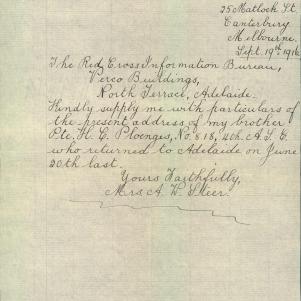 25 Matlock St.
Canterbury
Melbourne.
Sept. 19th 1916
The Red Cross Information Bureau,
Verco Buildings,
North Terrace, Adelaide.
Kindly supply me with particulars of
the present address of my brother
Pte. H. G. No. 818, 10th A.I.F.
who returned to Adelaide on June
20th last.
Yours Faithfully,
Mrs A. W.